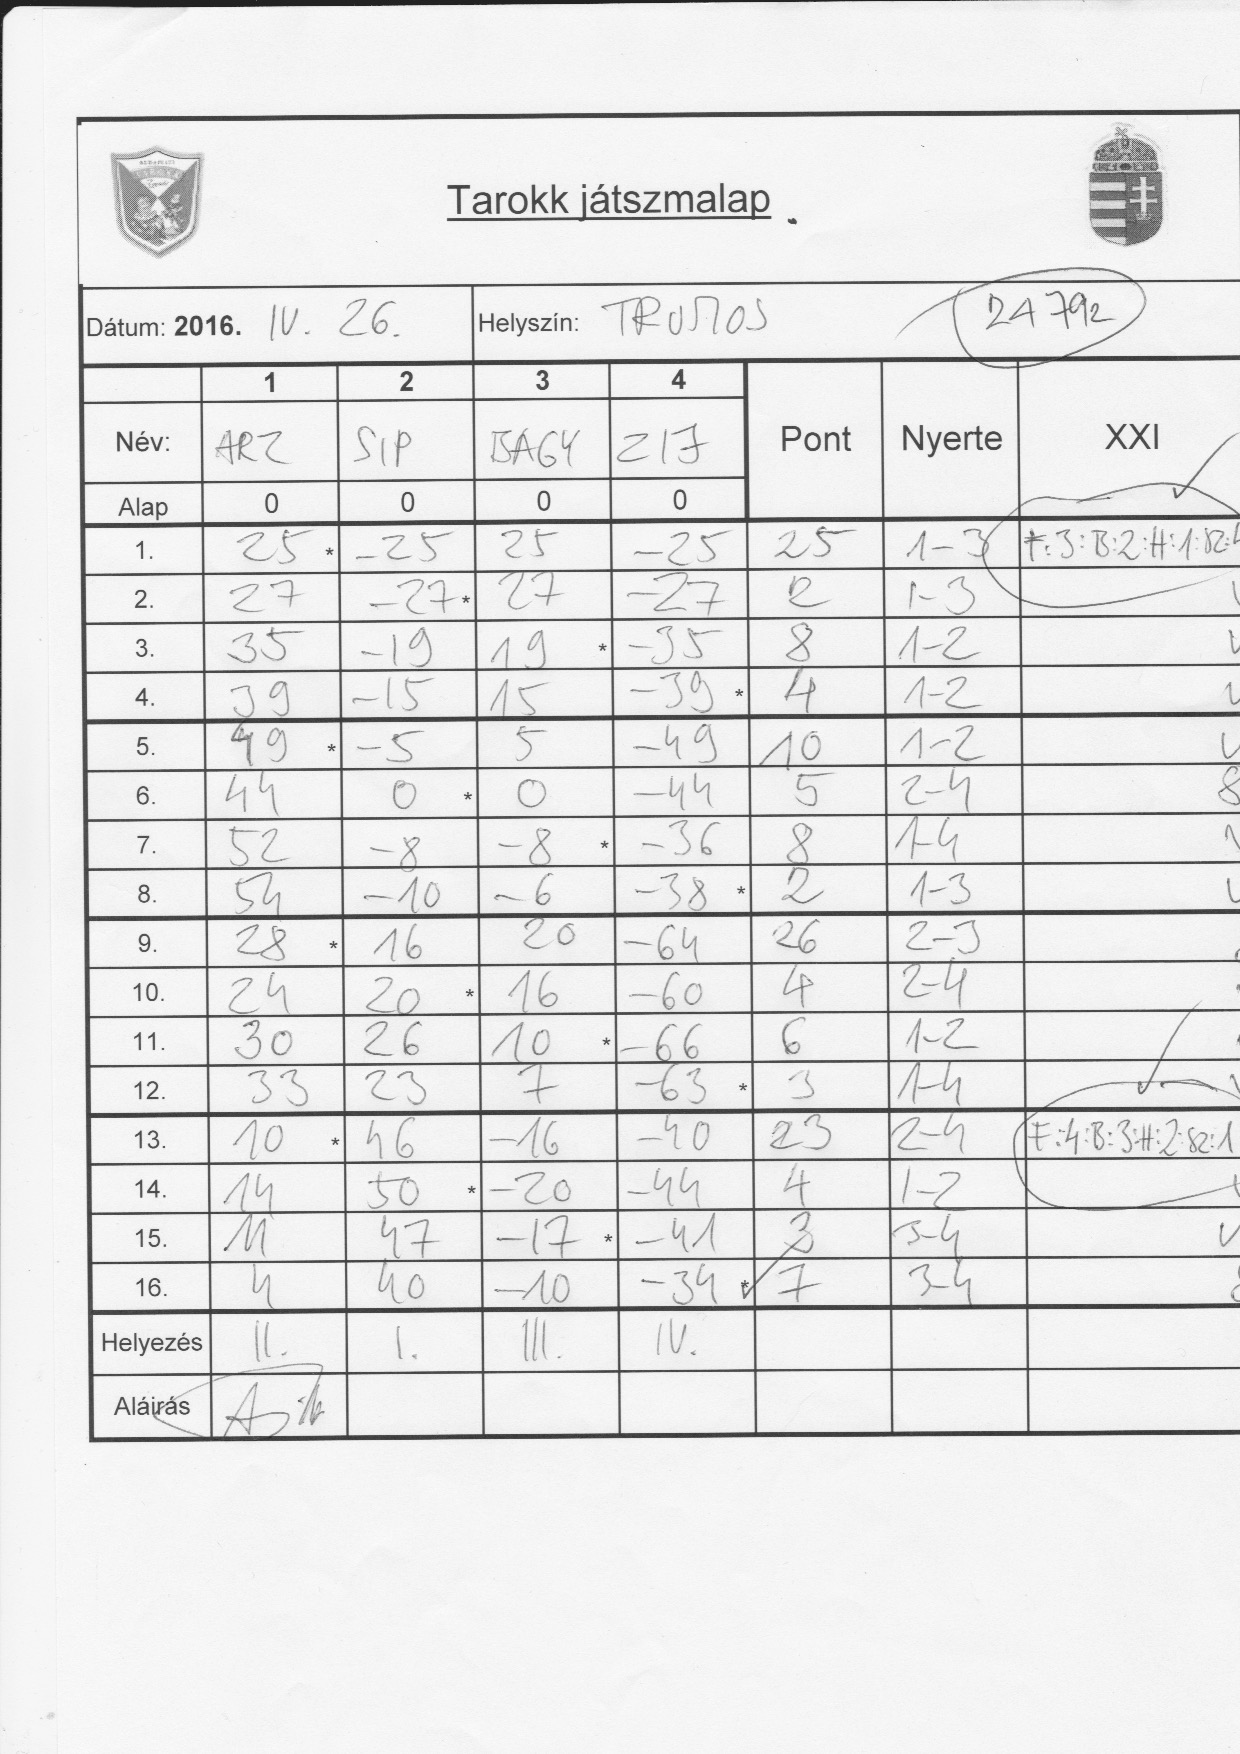 Tarokk játszmalap
Dátum: 2016. IV. 26. Helyszín: TRUMOS 24792
1 2 3 4
Név: ARZ SIP BAGY ZIJ Pont Nyerte XXI
Alap 0 0 0 0
1. 25 * -25 25 -25 25 1-3 F:3:B:2:H:1:SZ:4
2. 27 -27 * 27 -27 2 1-3
3. 35 -19 19 * -35 8 1-2
4. 39 -15 15 -39 * 4 1-2
5. 49 * -5 5 -49 10 1-2
6. 44 0 * 0 -44 5 2-4 8
7. 52 -8 -8 * -36 8 1-4
8. 54 -10 -6 -38 * 2 1-3
9. 28 * 16 20 -64 26 2-3
10. 24 20 * 16 -60 4 2-4
11. 30 26 10 * -66 6 1-2
12. 33 23 7 -63 * 3 1-4
13. 10 * 46 -16 -40 23 2-4 F:4:B:3:H:2:SZ:1
14. 14 50 * -20 -44 4 1-2
15. 11 47 -17 * -41 3 3-4
16. 4 40 -10 -34 * 7 3-4
Helyezés II. I. III. IV.
Aláírás